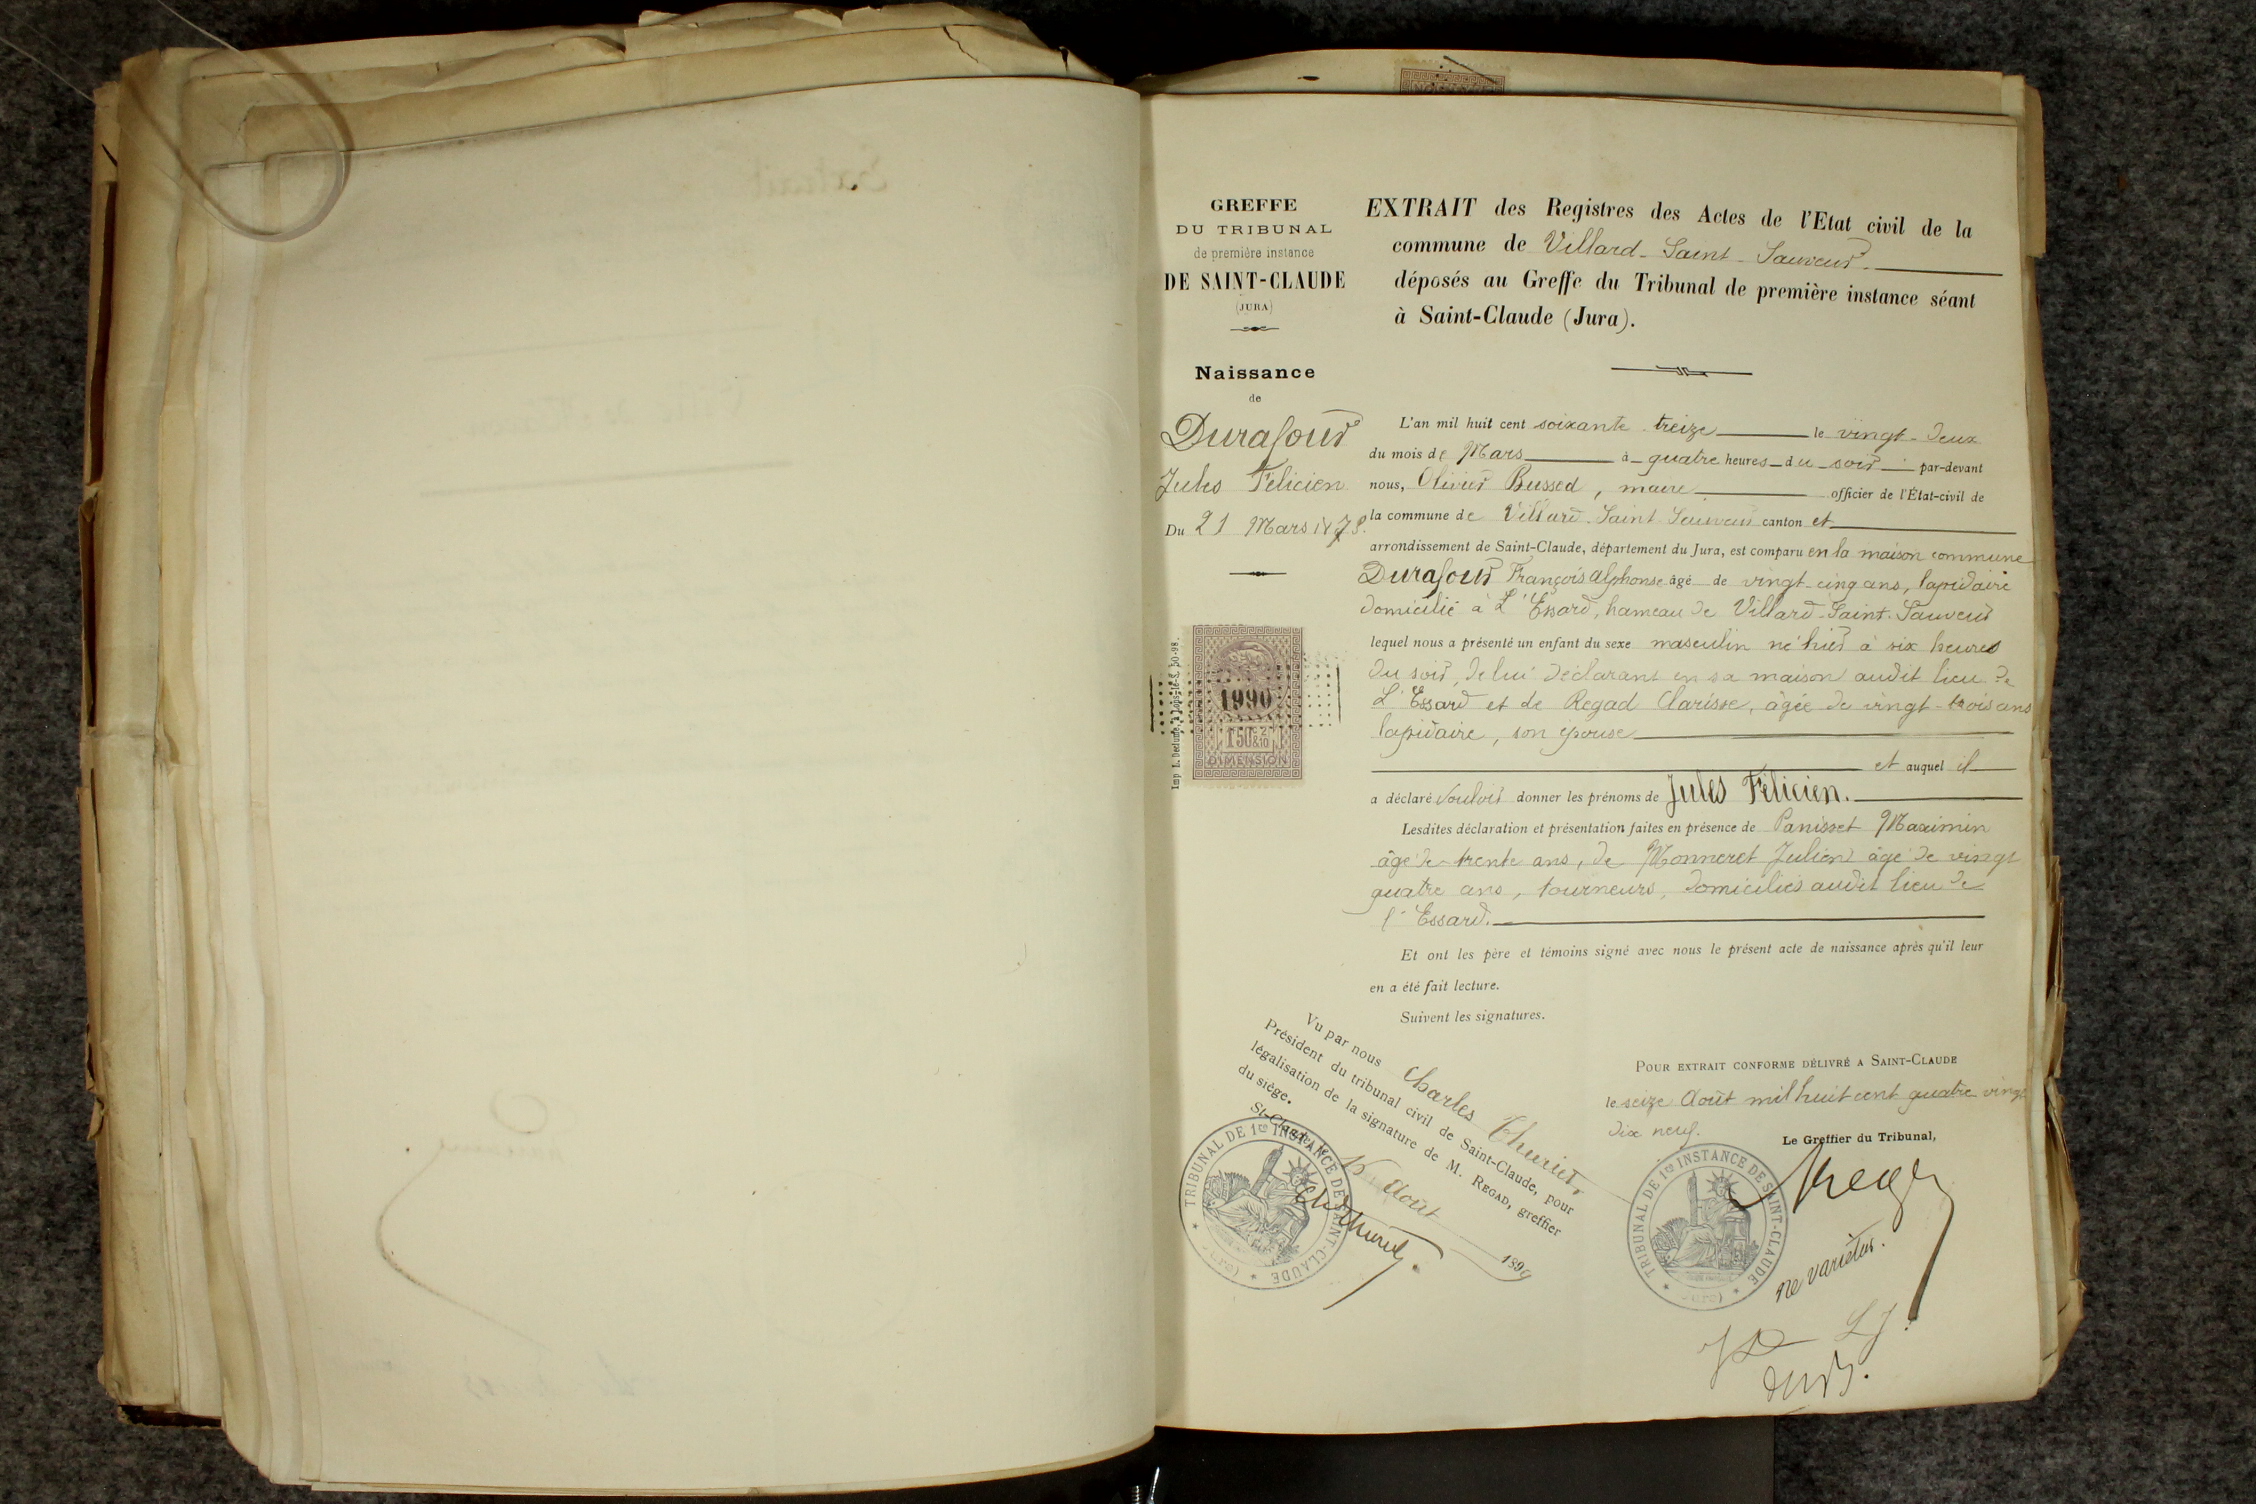 Extrait
GREFFE
DU TRIBUNAL
de première instance
DE SAINT-CLAUDE
(JURA)
Naissance
de
Durafour
Jules Félicien
Du 21 Mars 1873.
Imp. L. Declume, à Lons-le-S. 50-98.
1990
1f50c 2/10
DIMENSION
EXTRAIT des Registres des Actes de l'Etat civil de la
commune de Villard-Saint-Sauveur
déposés au Greffe du Tribunal de première instance séant
à Saint-Claude (Jura).
L'an mil huit cent soixante treize le vingt-deux
du mois de Mars à quatre heures du soir par-devant
nous, Olivier Bussod, maire officier de l'État-civil de
la commune de Villard-Saint-Sauveur canton et
arrondissement de Saint-Claude, département du Jura, est comparu en la maison commune
Durafour François Alphonse âgé de vingt-cinq ans, lapidaire
domicilié à L'Essard, hameau de Villard-Saint-Sauveur
lequel nous a présenté un enfant du sexe masculin né hier à six heures
du soir, de lui déclarant en sa maison audit lieu de
L'Essard et de Regad Clarisse, âgée de vingt-trois ans
lapidaire, son épouse
et auquel il
a déclaré vouloir donner les prénoms de Jules Félicien.
Lesdites déclaration et présentation faites en présence de Panisset Maximin
âgé de trente ans, de Monneret Julien âgé de vingt
quatre ans, tourneurs, domiciliés audit lieu de
l'Essard.
Et ont les père et témoins signé avec nous le présent acte de naissance après qu'il leur
en a été fait lecture.
Suivent les signatures.
Vu par nous Charles Thuriet,
Président du tribunal civil de Saint-Claude, pour
légalisation de la signature de M. REGAD, greffier
du siège.
St-Claude, le 16 Août 1899
TRIBUNAL DE 1re INSTANCE DE SAINT-CLAUDE
(Jura)
Ch. Thuriet
POUR EXTRAIT CONFORME DÉLIVRÉ A SAINT-CLAUDE
le seize Août mil huit cent quatre vingt
dix neuf.
Le Greffier du Tribunal,
TRIBUNAL DE 1re INSTANCE DE SAINT-CLAUDE
(Jura)
Regad
ne varietur.